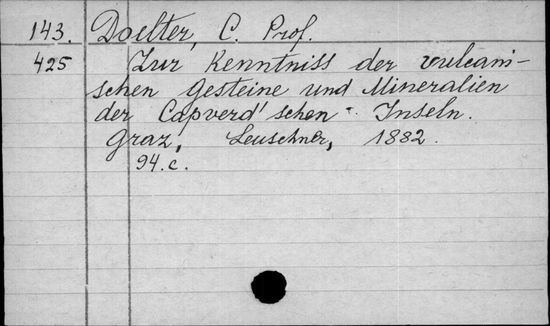 143. Doelter, C. Prof.
425 Zur Kenntniss der vulcani-
schen Gesteine und Mineralien
der Capverd'schen - Inseln.
Graz, Leuschner, 1882.
94.c.